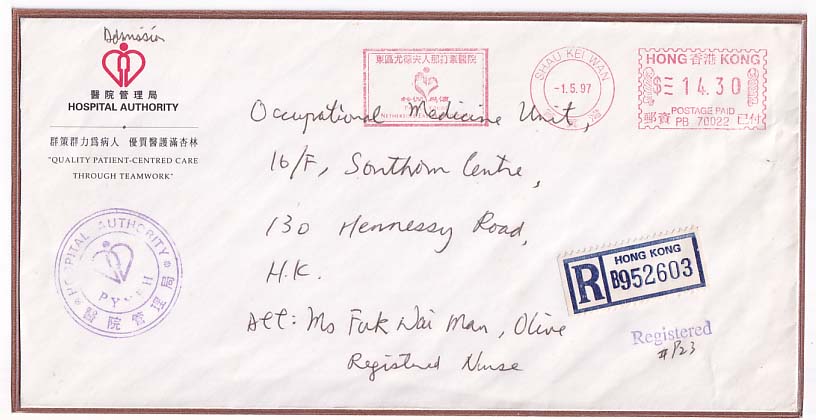 Admission
醫院管理局
HOSPITAL AUTHORITY
群策群力爲病人 優質醫護滿杏林
"QUALITY PATIENT-CENTRED CARE
THROUGH TEAMWORK"
東區尤德夫人那打素醫院
SHAU KEI WAN
-1.5.97
HONG 香港 KONG
$ 14.30
POSTAGE PAID
郵資 PB 70022 已付
Occupational Medicine Unit,
16/F, Southorn Centre,
130 Hennessy Road,
H.K.
Att: Ms Fuk Wai Man, Olive
Registered Nurse
HOSPITAL AUTHORITY
PYNEH
醫院管理局
HONG KONG
R B952603
Registered
#123